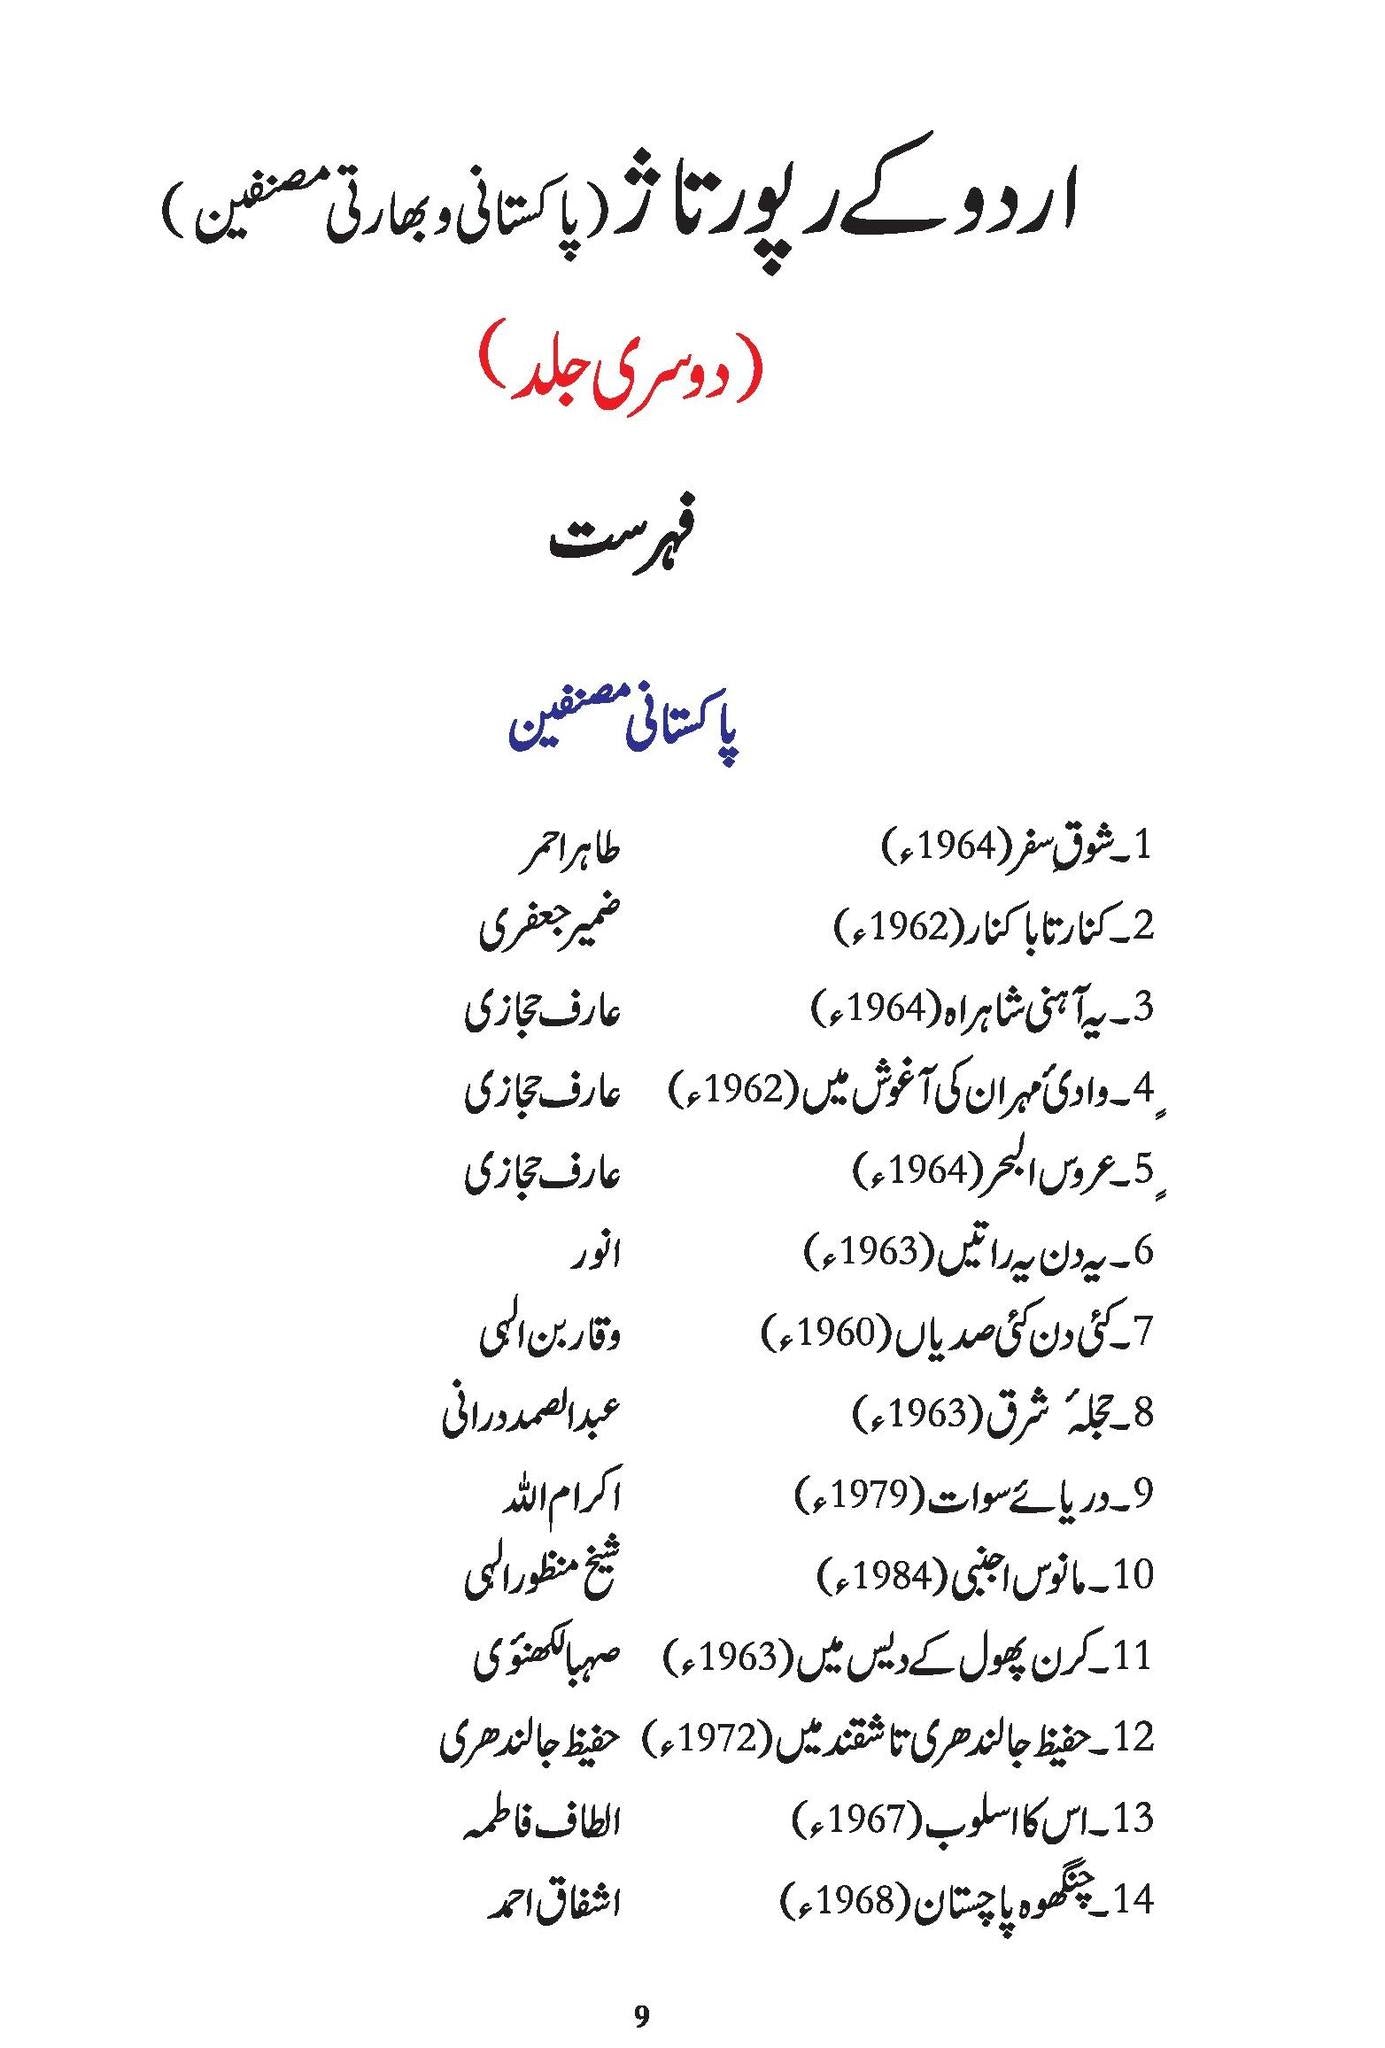 اردو کے رپورتاژ (پاکستانی و بھارتی مصنفین)
(دوسری جلد)
فہرست
پاکستانی مصنفین
1۔شوقِ سفر(1964ء) طاہر احمر
2۔کنار تا با کنار(1962ء) ضمیر جعفری
3۔یہ آہنی شاہراہ(1964ء) عارف حجازی
4۔وادیٔ مہران کی آغوش میں(1962ء) عارف حجازی
5۔عروس البحر(1964ء) عارف حجازی
6۔یہ دن یہ راتیں(1963ء) انور
7۔کئی دن کئی صدیاں(1960ء) وقار بن الہی
8۔حجلۂ شرق(1963ء) عبدالصمد درانی
9۔دریائے سوات(1979ء) اکرام اللہ
10۔مانوس اجنبی(1984ء) شیخ منظور الہی
11۔کرن پھول کے دیس میں(1963ء) صہبا لکھنوٗی
12۔حفیظ جالندھری تاشقند میں(1972ء) حفیظ جالندھری
13۔اس کا اسلوب(1967ء) الطاف فاطمہ
14۔چنگھوہ پاچستان(1968ء) اشفاق احمد
9